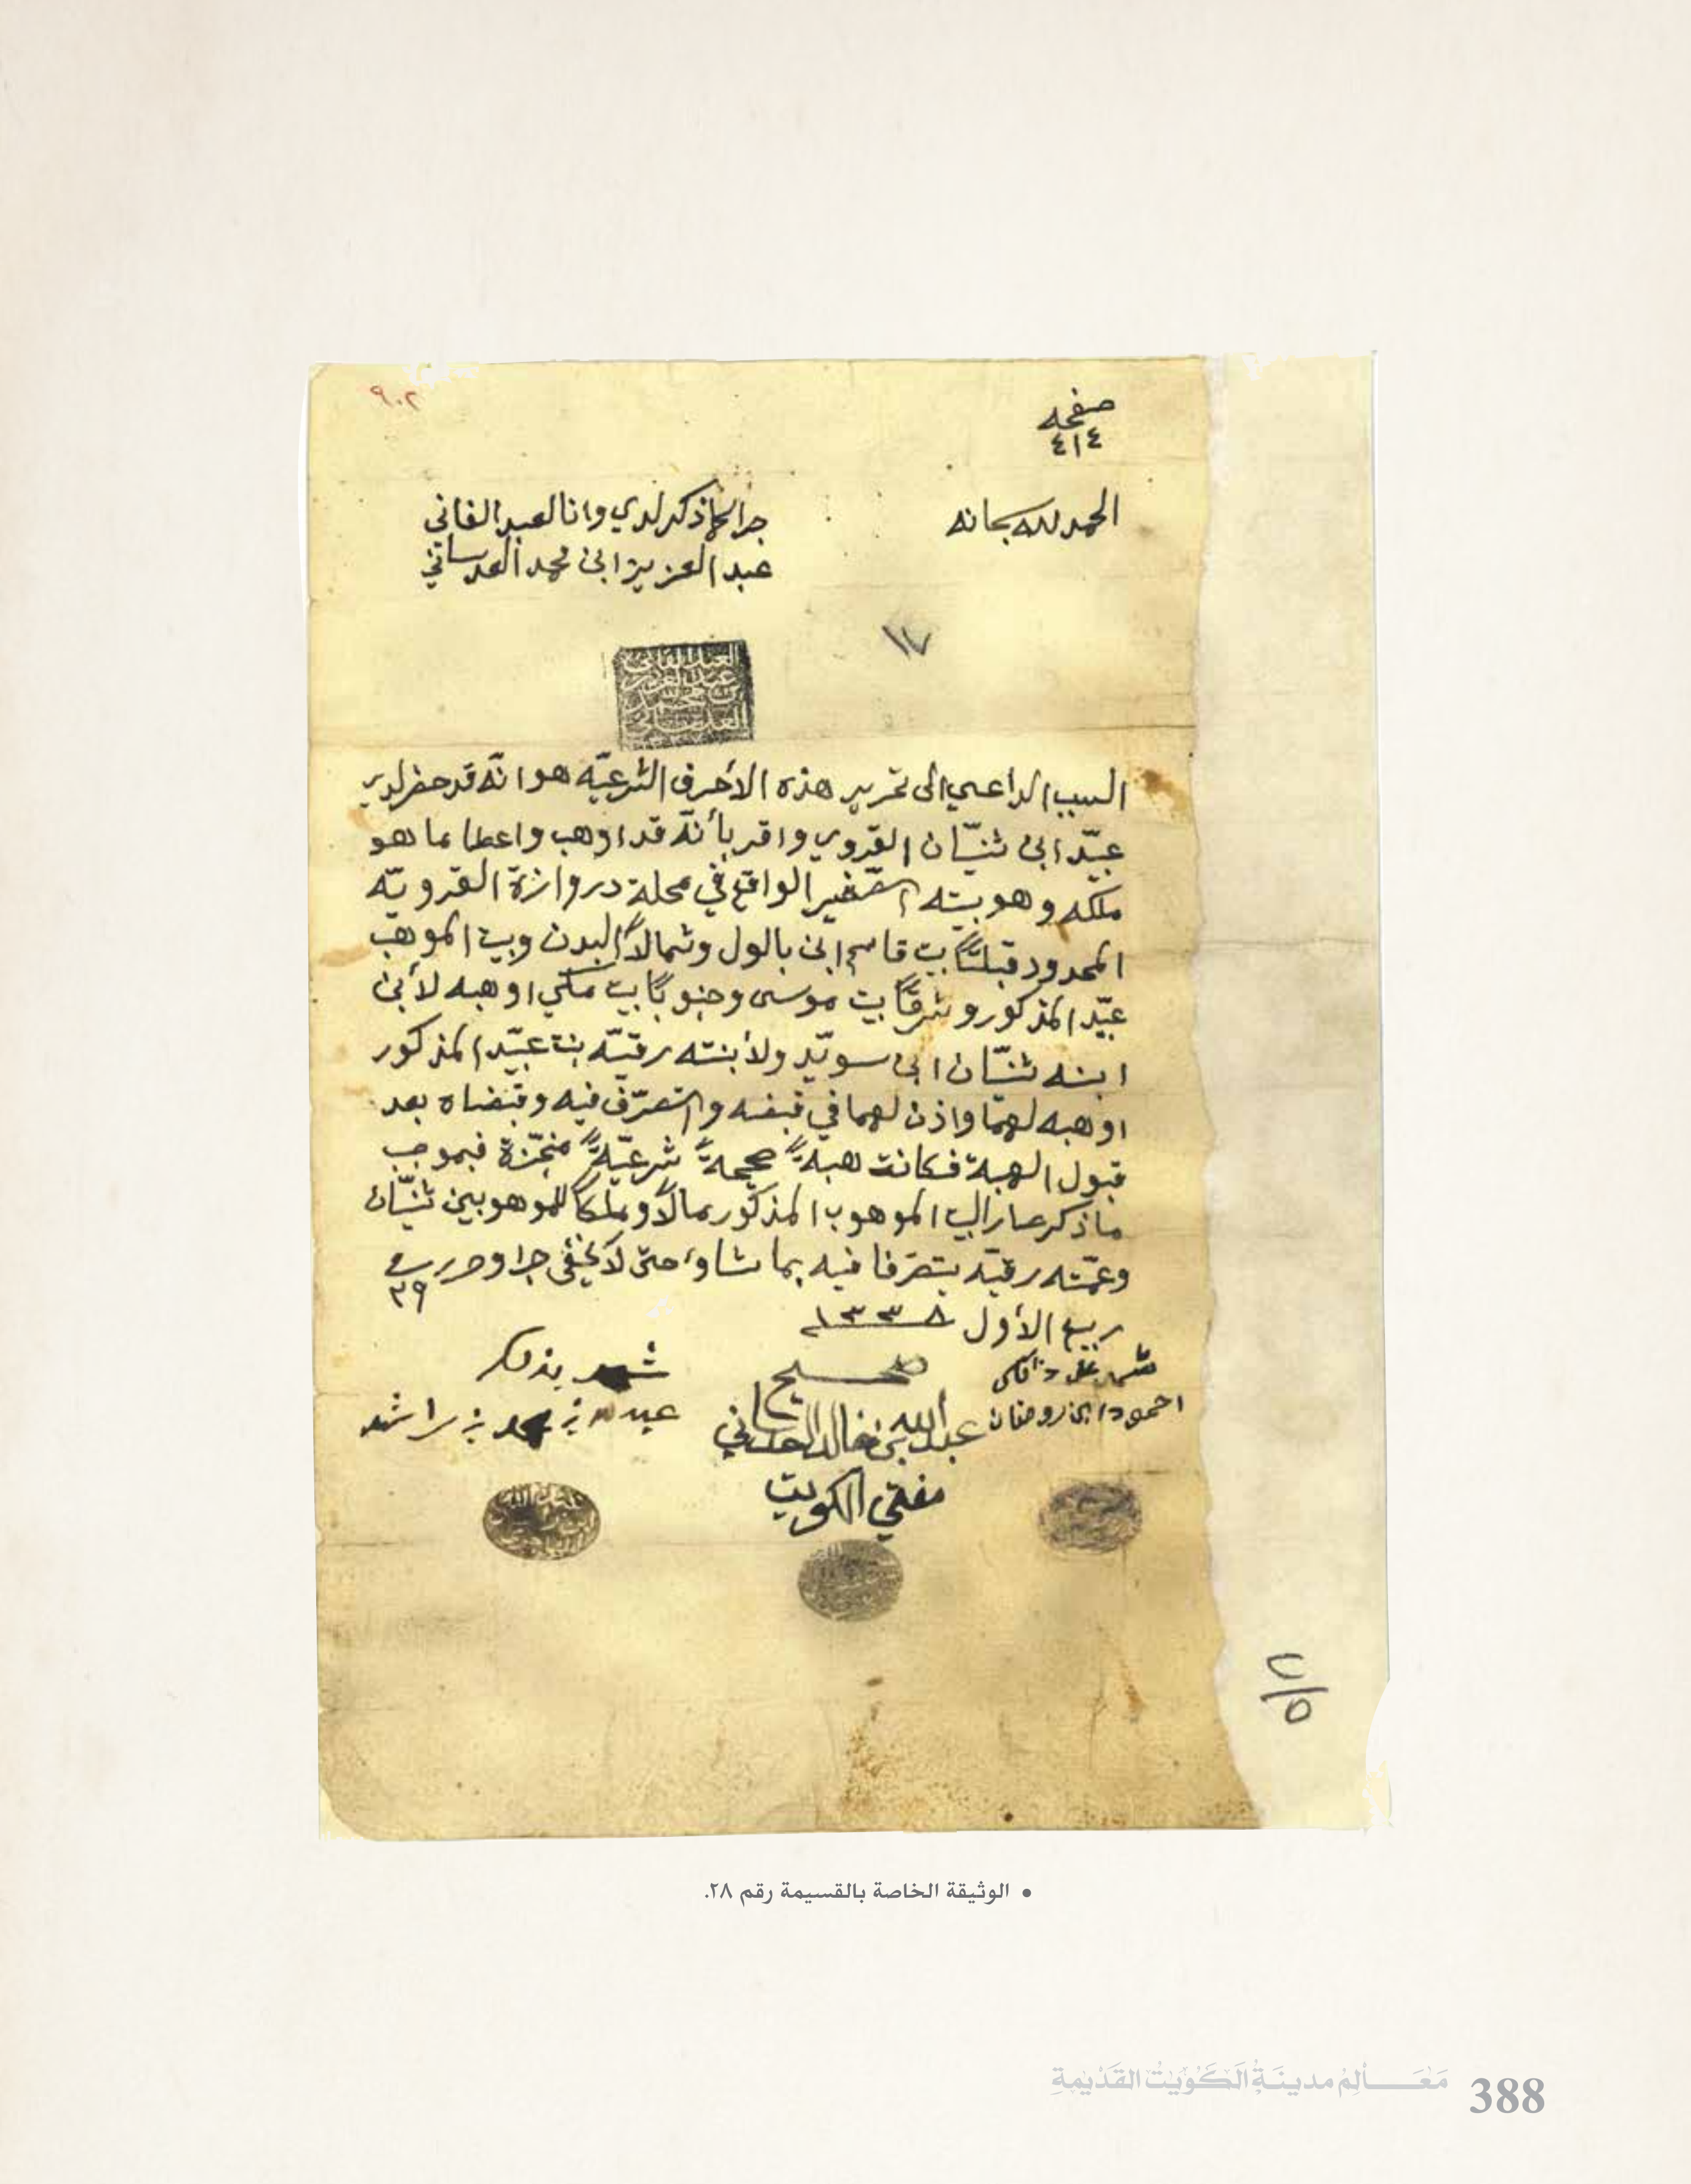 ٩٠٢
صفحه
٤١٤
الحمد لله سبحانه
جرا كما ذكر لدي وانا العبد الفاني
عبد العزيز ابن محمد العدساني
١٧
العبد الفاني
عبد العزيز
بن محمد
العدساني
السبب الداعي الى تحرير هذه الأحرف الشرعيّه هو انّه قد حضر لدي
عبيّد ابن ثنيّان القروي واقر بأنّه قد اوهب واعطا ما هو
ملكه وهو بيته الصّغير الواقع في محلة دروازة القرويّه
المحدود قبلتاً بيت قاسم ابن بالول وشمالاً البدن وبيت الموهب
عبيّد المذكور وشرقاً بيت موسى وجنوباً بيت مكي اوهبه لأبن
ابنه ثنيّان ابن سويّد ولأبنته رقيّه بنت عبيّد المذكور
اوهبه لهما واذن لهما في قبضه والتصرّف فيه وقبضاه بعد
قبول الهبة فكانت هبةً صحيحةً شرعيّةً منجّزة فبموجب
ما ذكر صار البيت الموهوب المذكور مالاً وملكاً للموهوبين ثنيّان
وعمّته رقيّه يتصرّفا فيه بما شاؤا حتى لا يخفى جرا وحرر في
٢٩
ربيع الأول ١٣٣٨
شهد على ذالك
احمود ابن رمضان
صحيح
عبد الله بن خالد العدساني
مفتي الكويت
شهد بذلك
عبد الله بن محمد بن راشد
٥/٢
• الوثيقة الخاصة بالقسيمة رقم ٢٨.
مَعَـالِمُ مدينَةِ الكَوَيْتْ القَدْيمةِ 388